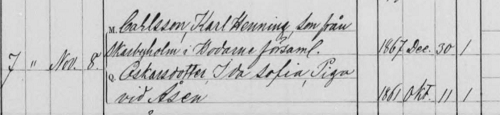 M. Carlsson, Karl Henning, son från
7 " Nov. 8 Skarbyholm i Hovarne församl. 1867 Dec. 30 1
Q. Oskarsdotter, Ida Sofia, Piga
vid Åsen 1861 Okt. 11 1